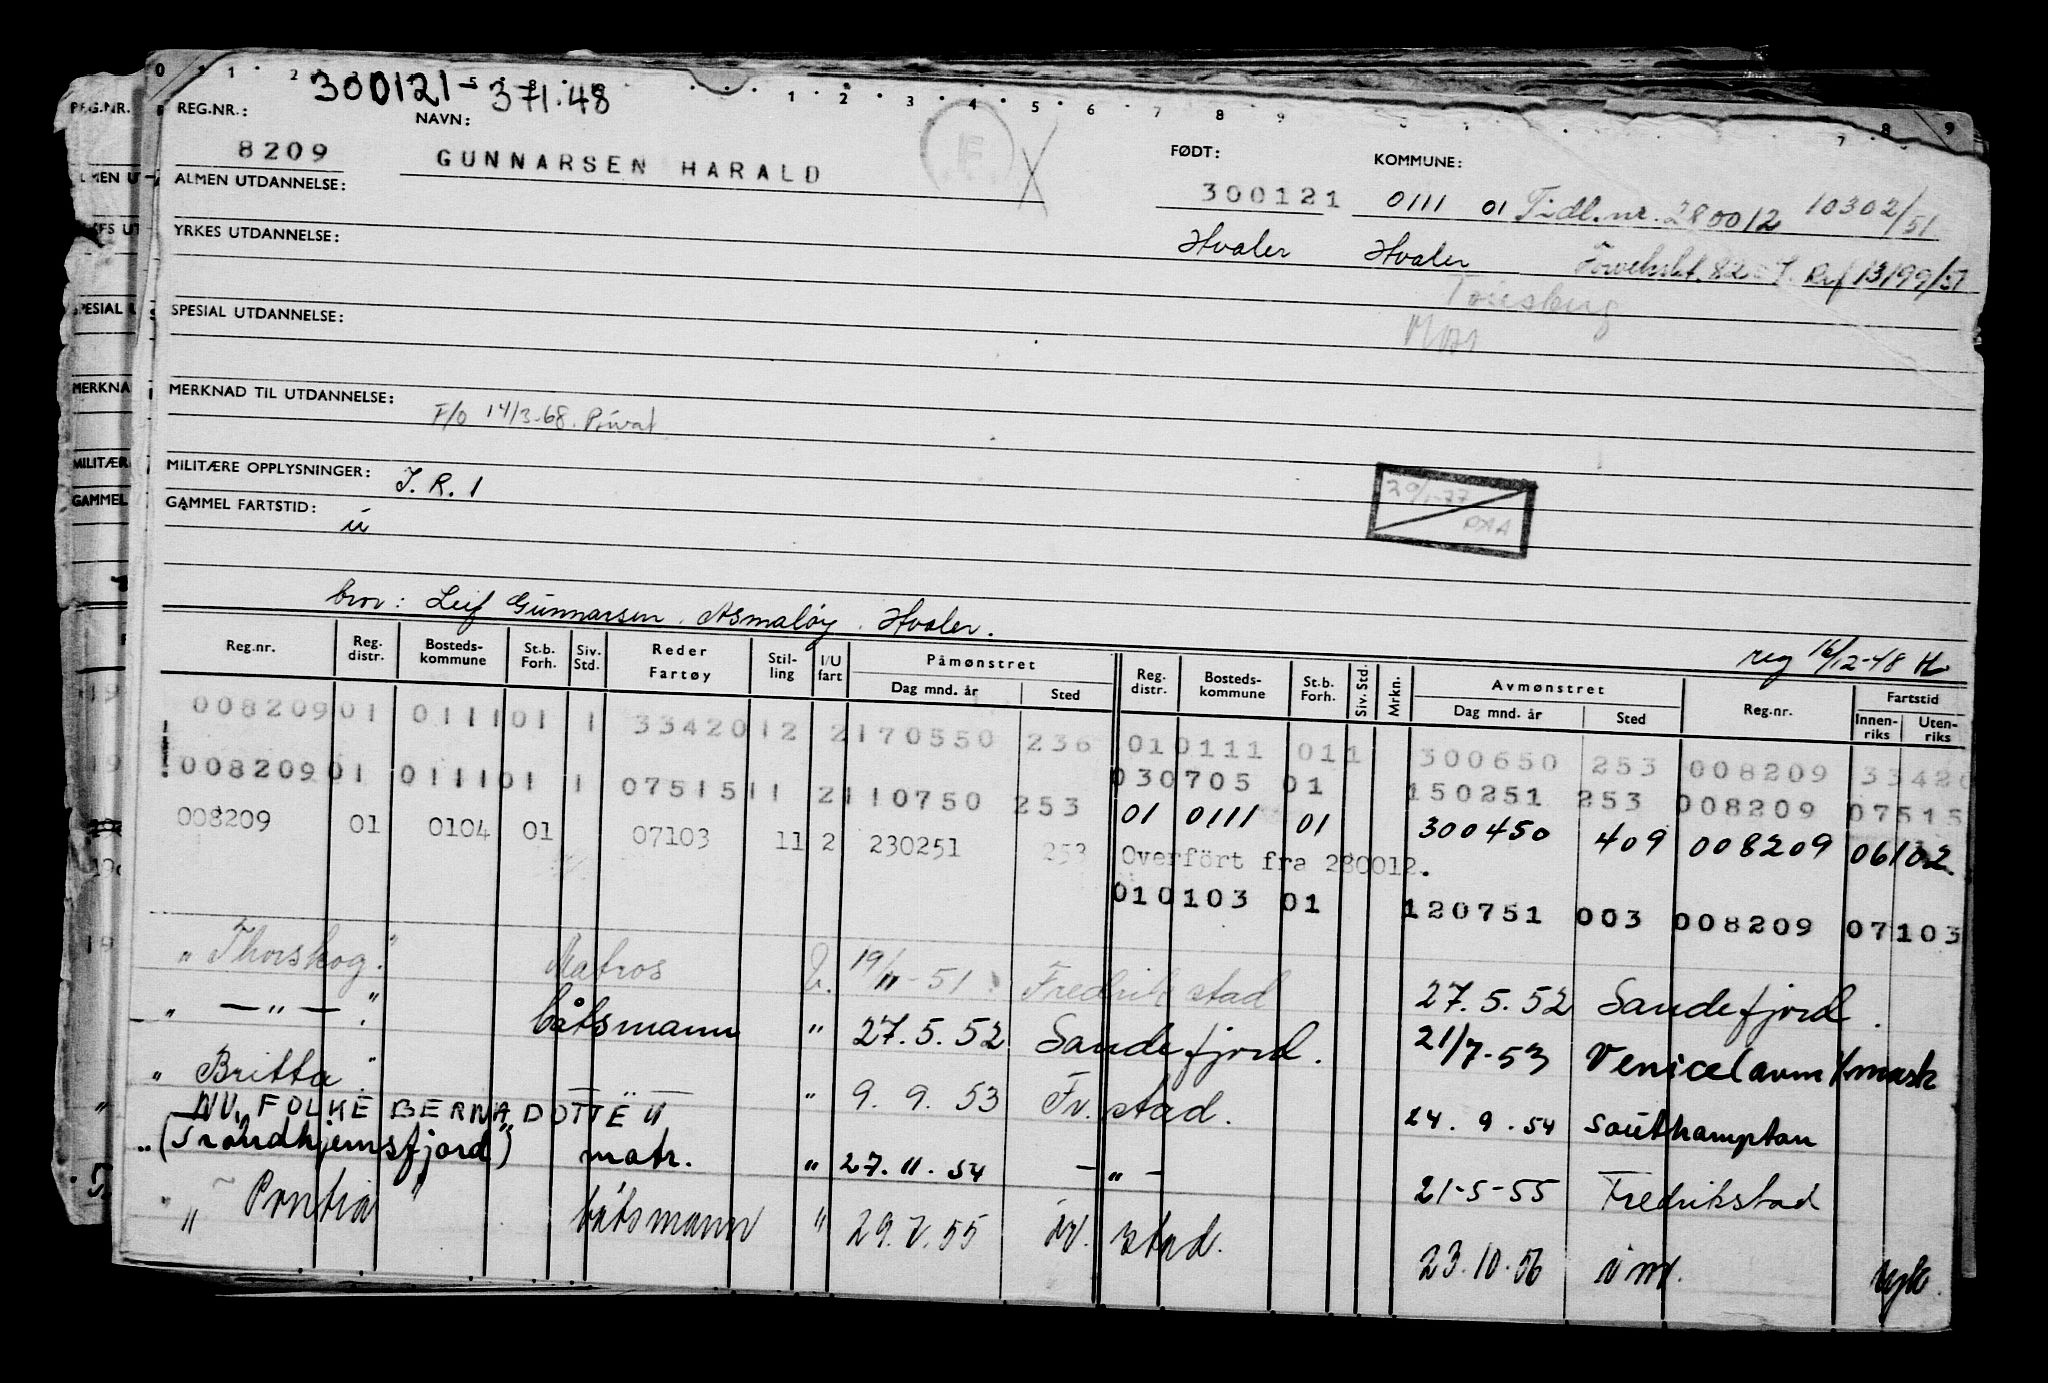 300121-371.48
REG.NR.: NAVN: FØDT: KOMMUNE:
8209 GUNNARSEN HARALD 300121 0111 01 Tidl.nr. 280012 10302/51
ALMEN UTDANNELSE:
Hvaler Hvaler Ref 13199/51
YRKES UTDANNELSE:
SPESIAL UTDANNELSE:
MERKNAD TIL UTDANNELSE:
F/O 14/3-68. Privat
MILITÆRE OPPLYSNINGER: I.R.1
29/1-77
GAMMEL FARTSTID: u
bror: Leif Gunnarsen. Asmaløy. Hvaler.
reg 16/12-48 H
Reg.nr. Reg. distr. Bosteds-kommune St.b. Forh. Siv. Std. Reder Fartøy Stil-ling I/U fart Påmønstret Dag mnd. år Sted Reg. distr. Bosteds-kommune St.b. Forh. Siv. Std. Mrkn. Avmønstret Dag mnd. år Sted Reg.nr. Fartstid Innen-riks Uten-riks
008209 01 0111 01 1 33420 12 2 170550 236 01 0111 01 1 300650 253 008209 33420
008209 01 0111 01 1 07515 11 2 110750 253 03 0705 01 150251 253 008209 07515
01 0111 01 300450 409 008209 06102
008209 01 0104 01 07103 11 2 230251 253 Overført fra 280012.
01 0103 01 120751 003 008209 07103
" Thorskog." Matros U. 19/11-51 Fredrikstad 27.5.52 Sandefjord.
" — " — " båtsmann " 27.5.52 Sandefjord. 21/7-53 Venice (avm
" Britta." — " — " 9.9.53 Fr.stad. 24.9.54 Southampton
NU "FOLKE BERNADOTTE"
" (Trondhjemsfjord") matr. " 27.11.54 — " — 21-5-55 Fredrikstad
" Pontia " båtsmann " 29.7.55 Fr.stad. 23.10.56